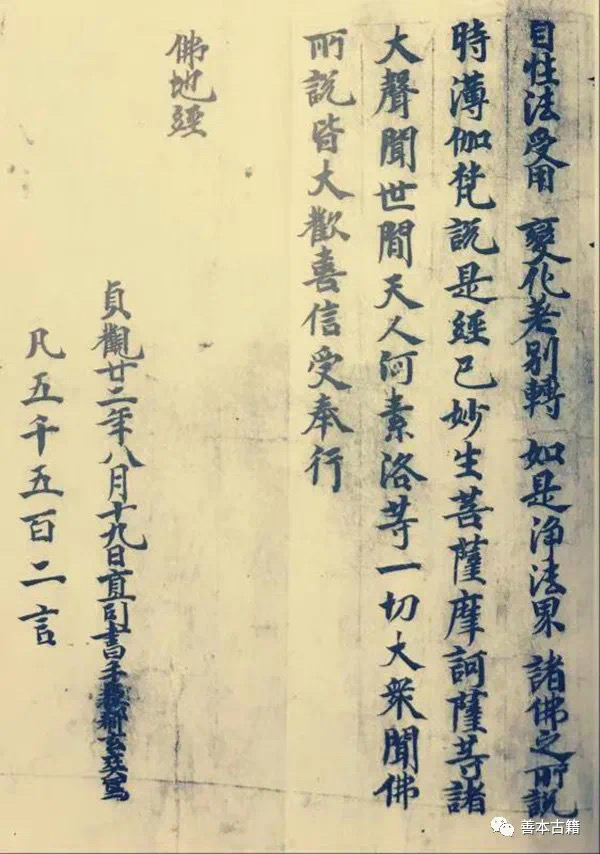 自性法受用 變化差別轉 如是淨法界 諸佛之所說
時薄伽梵說是經已妙生菩薩摩訶薩等諸
大聲聞世間天人阿素洛等一切大衆聞佛
所說皆大歡喜信受奉行
佛地經
貞觀廿二年八月十九日直司書手
凡五千五百二言
善本古籍